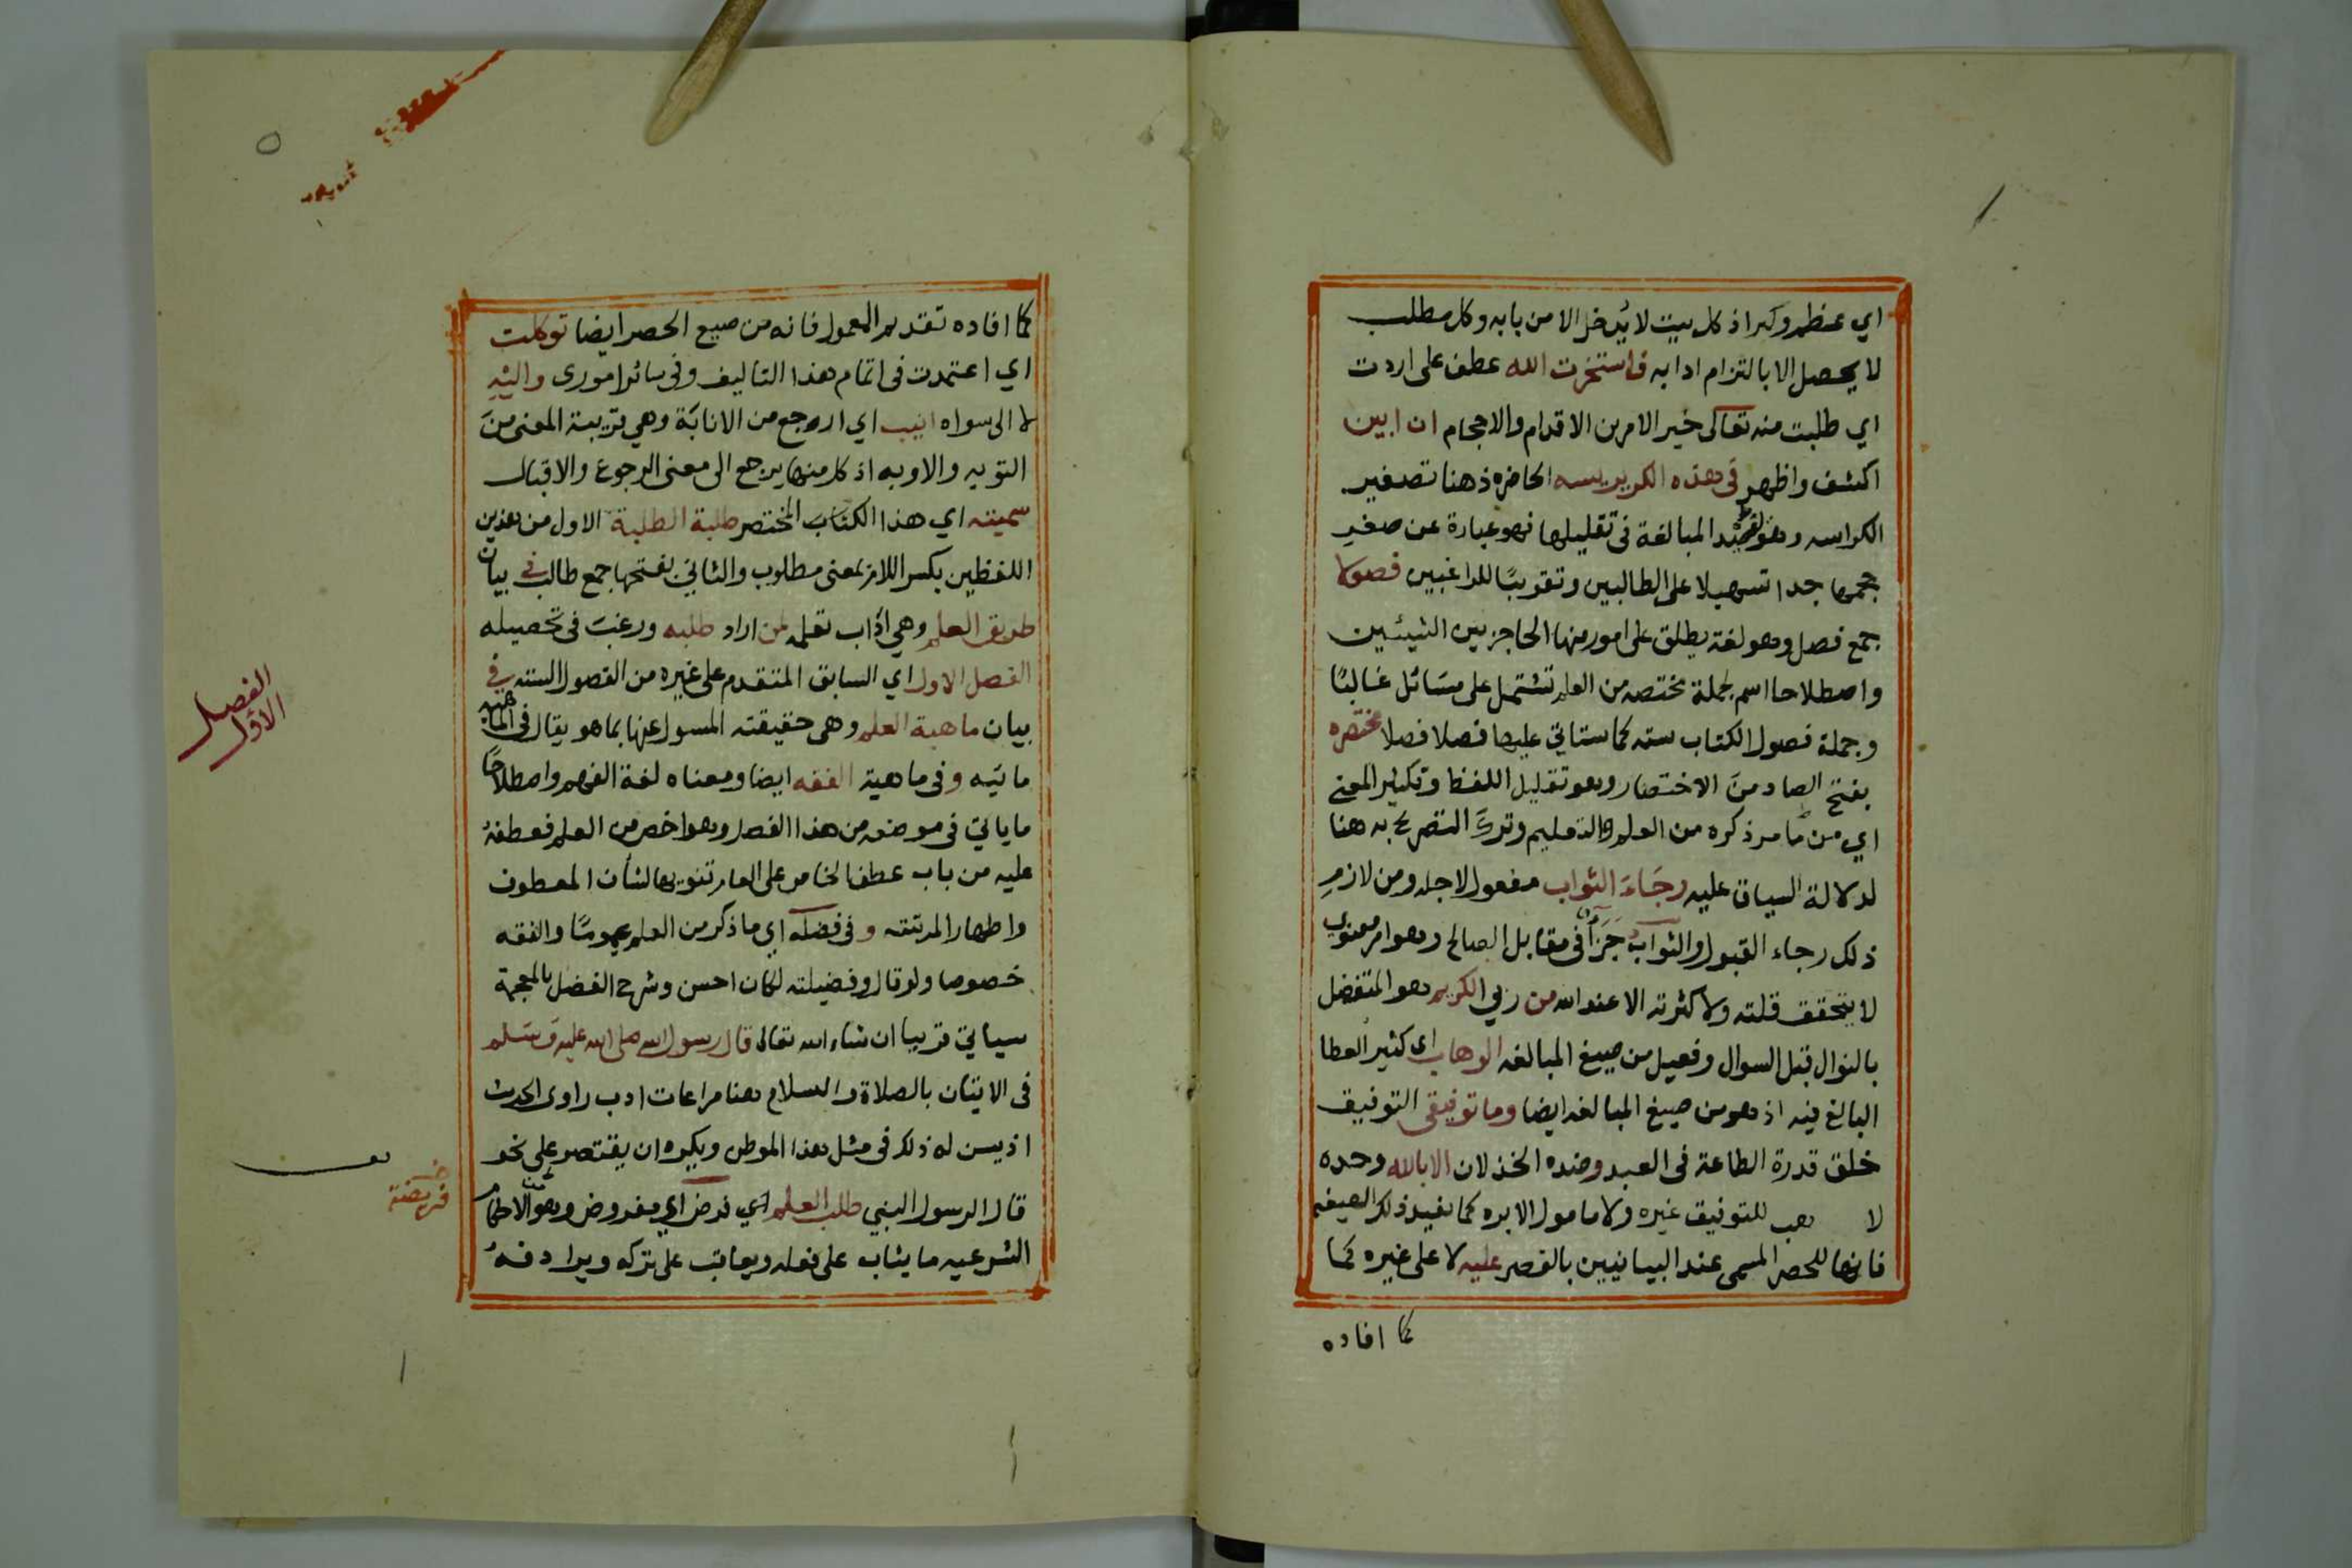 اي عظم وكبر اذ كل بيت لا يدخل الا من بابه وكل مطلب
لا يحصل الا بالتزام ادابه فاستخرت الله عطف على اردت
اي طلبت منه تعالى خير الامرين الاقدام والاحجام ان ابين
اكشف واظهر في هذه الكريريسه الحاضره ذهنا تصغير
الكراسه وهو لقصد المبالغة في تقليلها فهو عبارة عن صغر
حجمها جدا تسهيلا على الطالبين وتقريبًا للراغبين فصولا
جمع فصل وهو لغة يطلق على امور منها الحاجز بين الشيئين
واصطلاحا اسم لجملة مختصه من العلم تشتمل على مسَائل غالبًا
وجملة فصول الكتاب سته كما ستاتي عليها فصلا فصلا مختصره
بفتح الصاد منَ الاختصار وهو تقليل اللفظ وتكثير المعنى
اي من ما مر ذكره من العلم والتعليم وتركَ التصريح به هنا
لدلالة السياق عليه رجَاءَ الثواب مفعول لاجله ومن لازم
ذلك رجاء القبول والثواب جَزَآءٌ في مقابل الصالح وهو امر معنوي
لا يتحقق قلته ولا كثرته الا عند الله من ربي الكريم هو المتفضل
بالنوال قبل السوال وفعيل من صيغ المبالغه الوهاب اي كثير العطا
البالغ فيه اذ هو من صيغ المبالغه ايضا وما توفيقي التوفيق
خلق قدرة الطاعة في العبد وضده الخذلان الا بالله وحده
لا هب للتوفيق غيره ولا مامول الا بره كما يفيد ذلك الصيغه
فانها للحصر المسمى عند البيانيين بالقصر عليه لا على غيره كما
كما افاده
٥
كما افاده تقديم المعمول فانه من صيغ الحصر ايضا توكلت
اي اعتمدت في اتمام هذا التاليف وفي سائر اموري واليْهِ
لا الى سواه انيب اي ارجع من الانابَة وهي قريبة المعنى منَ
التوبه والاوبه اذ كل منها يرجع الى معنى الرجوع والاقبال
سميته اي هذا الكتاب المختصر طلبة الطلبة الاول من هذين
اللفظين بكسر اللام بمعنى مطلوب والثاني بفتحها جمع طالب في بيان
طريق العلم وهي آداب تعلمه لمن اراد طلبه ورغبَ في تحصيله
الفصل الاول اي السابق المتقدم على غيره من الفصول السته في
بيان ماهية العلم وهي حقيقته المسول عنها بما هو يقال في الماهيه
مائيَه وفي ماهية الفقه ايضا ومعناه لغة الفهم واصطلاحًا
ما ياتي في موضعه من هذا الفصل وهو اخص من العلم فعطفهُ
عليه من باب عطف الخاص على العام تنويها لشأن المعطوف
واظهارا لمرتبته وفي فضله اي ما ذكر من العلم عمومًا والفقه
خصوصا ولو قال وفضيلته لكان احسن وشرح الفضل بالمعجمة
سياتي قريبا ان شاء الله تعالى قال رسول الله صلى الله عليه وسَلم
في الاتيان بالصلاة والسلام هنا مراعات ادب راوي الحديث
اذ يسن له ذلك في مثل هذا الموطن ويكره ان يقتصر على نحو
قال الرسول النبي طلب العلم اي فرض اي مفروض وهو من الاحكام
الشرعيه ما يثاب على فعله ويعاقب على تركه ويرادفهُ
الفصل
الاول
فريضة